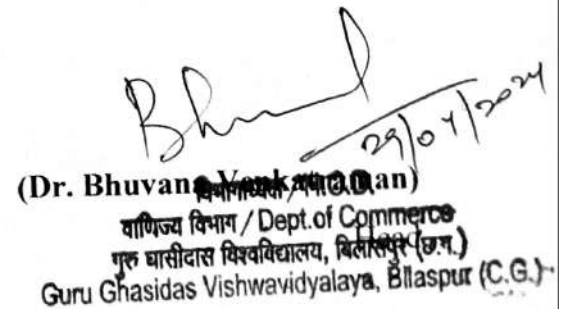 29/04/2024
(Dr. Bhuvana Venkatraman)
विभागाध्यक्ष / H.O.D.
वाणिज्य विभाग / Dept.of Commerce
Head
गुरु घासीदास विश्वविद्यालय, बिलासपुर (छ.ग.)
Guru Ghasidas Vishwavidyalaya, Bilaspur (C.G.)